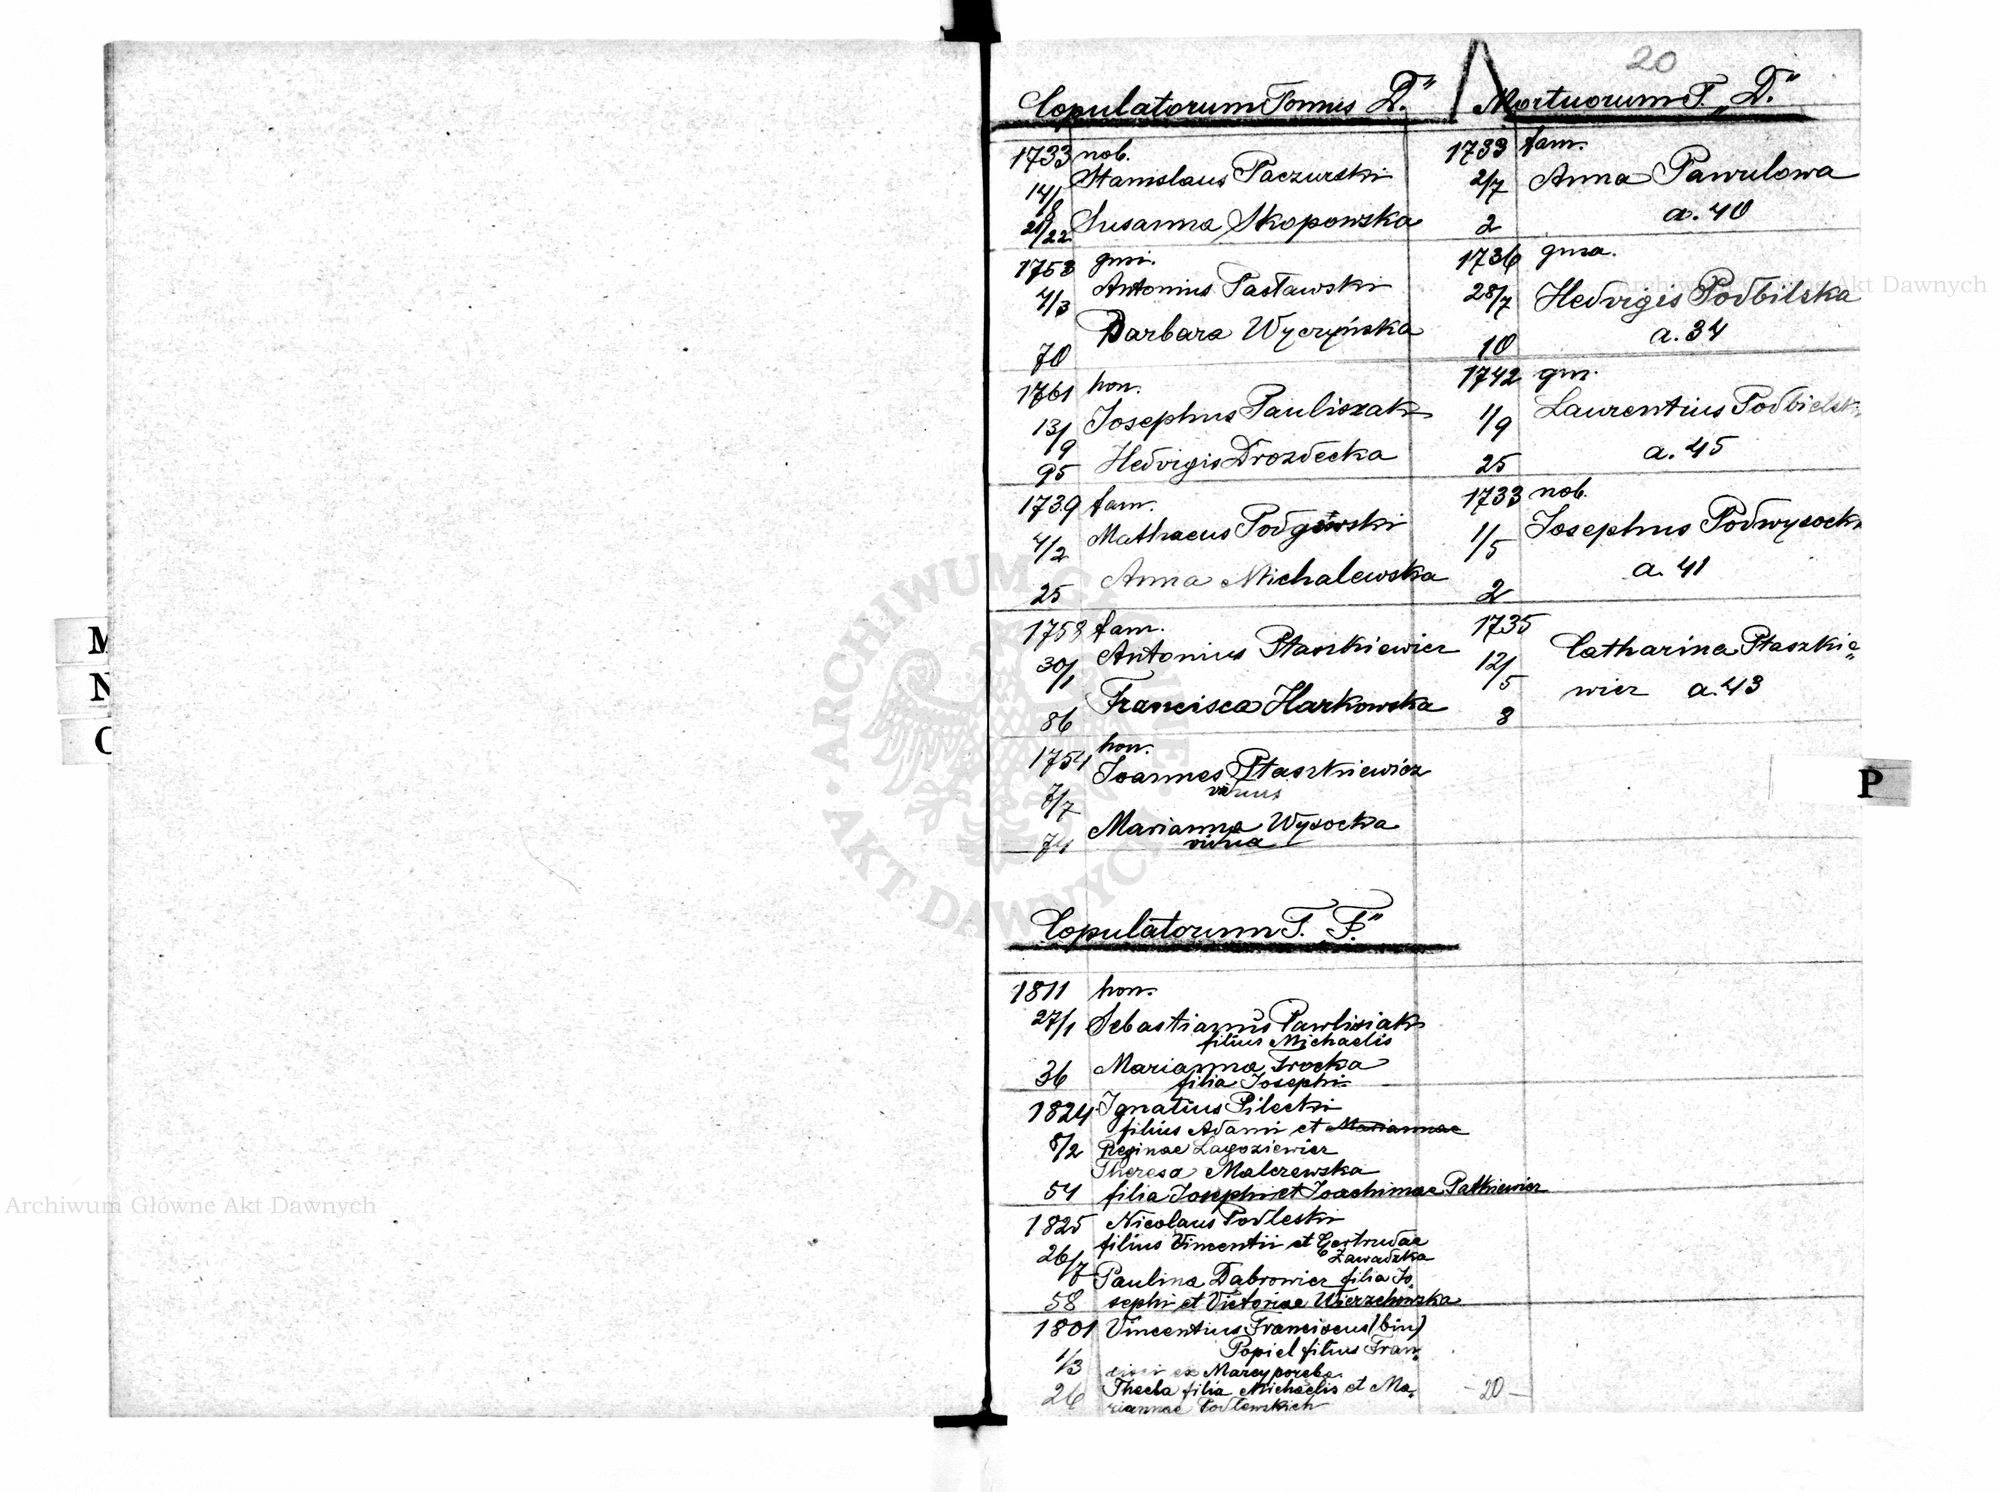 20
Copulatorum Tomus „D."
1733 nob.
Stanislaus Paczurski
14/8
Susanna Skopowska
21/22
1753 gnsi.
Antonius Pasławski
4/3
Barbara Wyczyńska
70
1761 hon.
Josephus Pauliszak
13/9
Hedvigis Drozdecka
95
1739 fam.
Mathaeus Podgórski
4/2
Anna Michalewska
25
1758 fam.
Antonius Ptaszkiewicz
30/1
Francisca Harkowska
86
1754 hon.
Joannes Ptaszkiewicz
viduus
7/7
Marianna Wysocka
vidua
74
Mortuorum T. „D."
1733 fam.
2/7 Anna Pawulowa
a. 40
2
1736 gnsa.
28/7 Hedvigis Podbilska
a. 34
10
1742 gns.
1/9 Laurentius Podbielski
a. 45
25
1733 nob.
1/5 Josephus Podwysocki
a. 41
2
1735
12/5 Catharina Ptaszkie„
wicz a. 43
8
Copulatorum T. „F."
1811 hon.
27/1 Sebastianus Pawlisiak
filius Michaelis
36 Marianna Trocka
filia Josephi
1824 Ignatius Pilecki
filius Adami et Mariannae
8/2 Reginae Lagoziewicz
Theresa Malczewska
54 filia Josephi et Joachimae Patkiewicz
1825 Nicolaus Podleski
filius Vincentii et Gertrudae
Zawadzka
26/7 Paulina Dabrowicz filia Jo„
58 sephi et Victoriae Wierzchowska
1801 Vincentius Franciscus (bin)
Popiel filius Fran„
1/3 cisci ex Marcyporeba
26 Thecla filia Michaelis et Ma„
riannae Podlewskich
- 20 -
M
N
O
P
Archiwum Główne Akt Dawnych
Archiwum Główne Akt Dawnych
ARCHIWUM GŁÓWNE AKT DAWNYCH